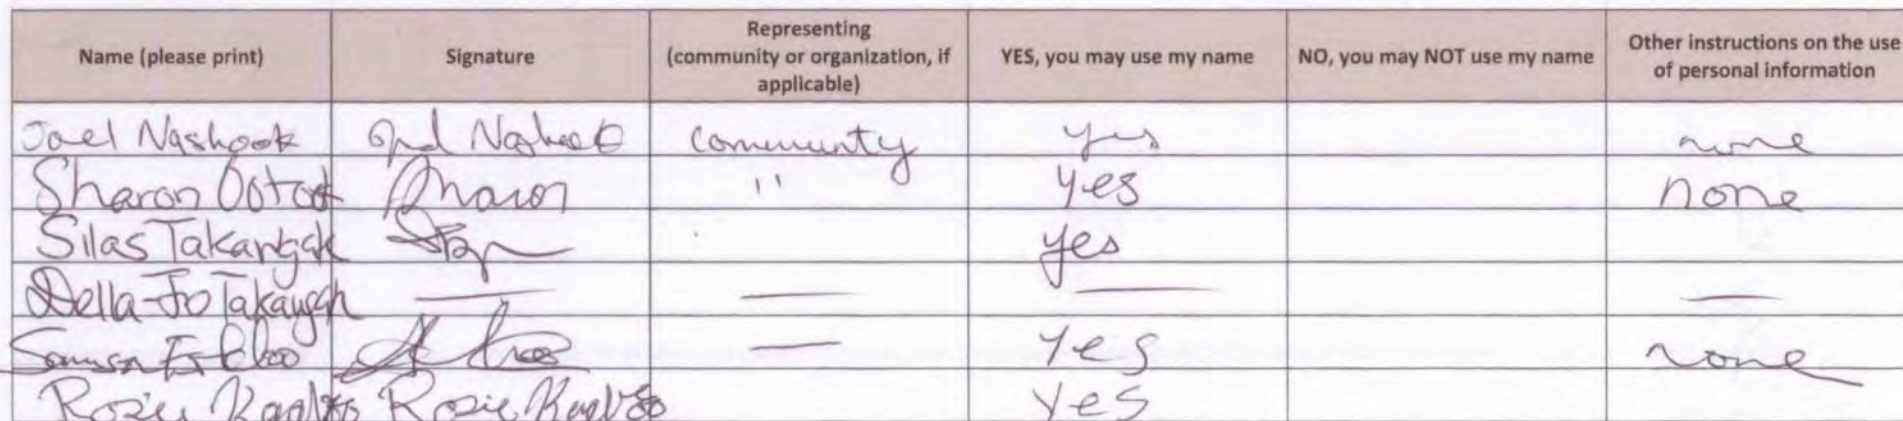 Name (please print) Signature Representing (community or organization, if applicable) YES, you may use my name NO, you may NOT use my name Other instructions on the use of personal information
Joel Nashook Nashook community yes none
Sharon Ootook Sharon " yes none
Silas Takangak yes
Della-Jo Takangak — — — —
Samson — yes none
Rosie Rosie yes